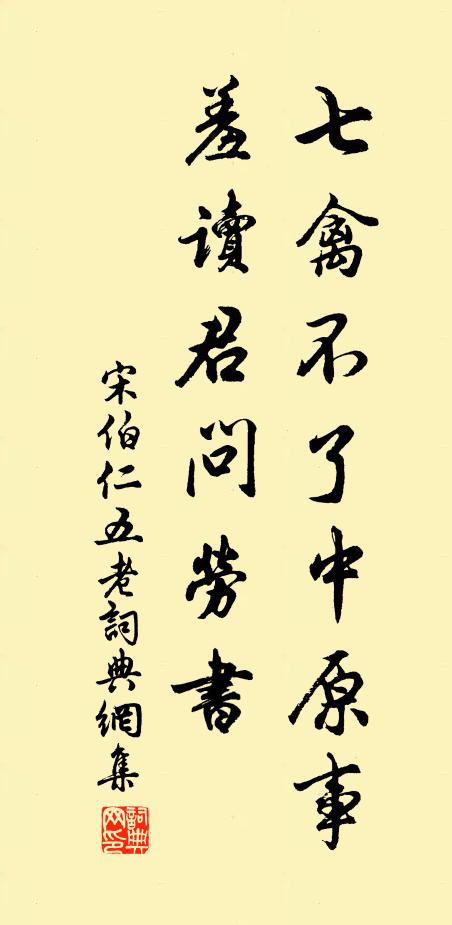 七禽不了中原事
羞讀君問勞書
宋伯仁五老詞典網集
詞典網印